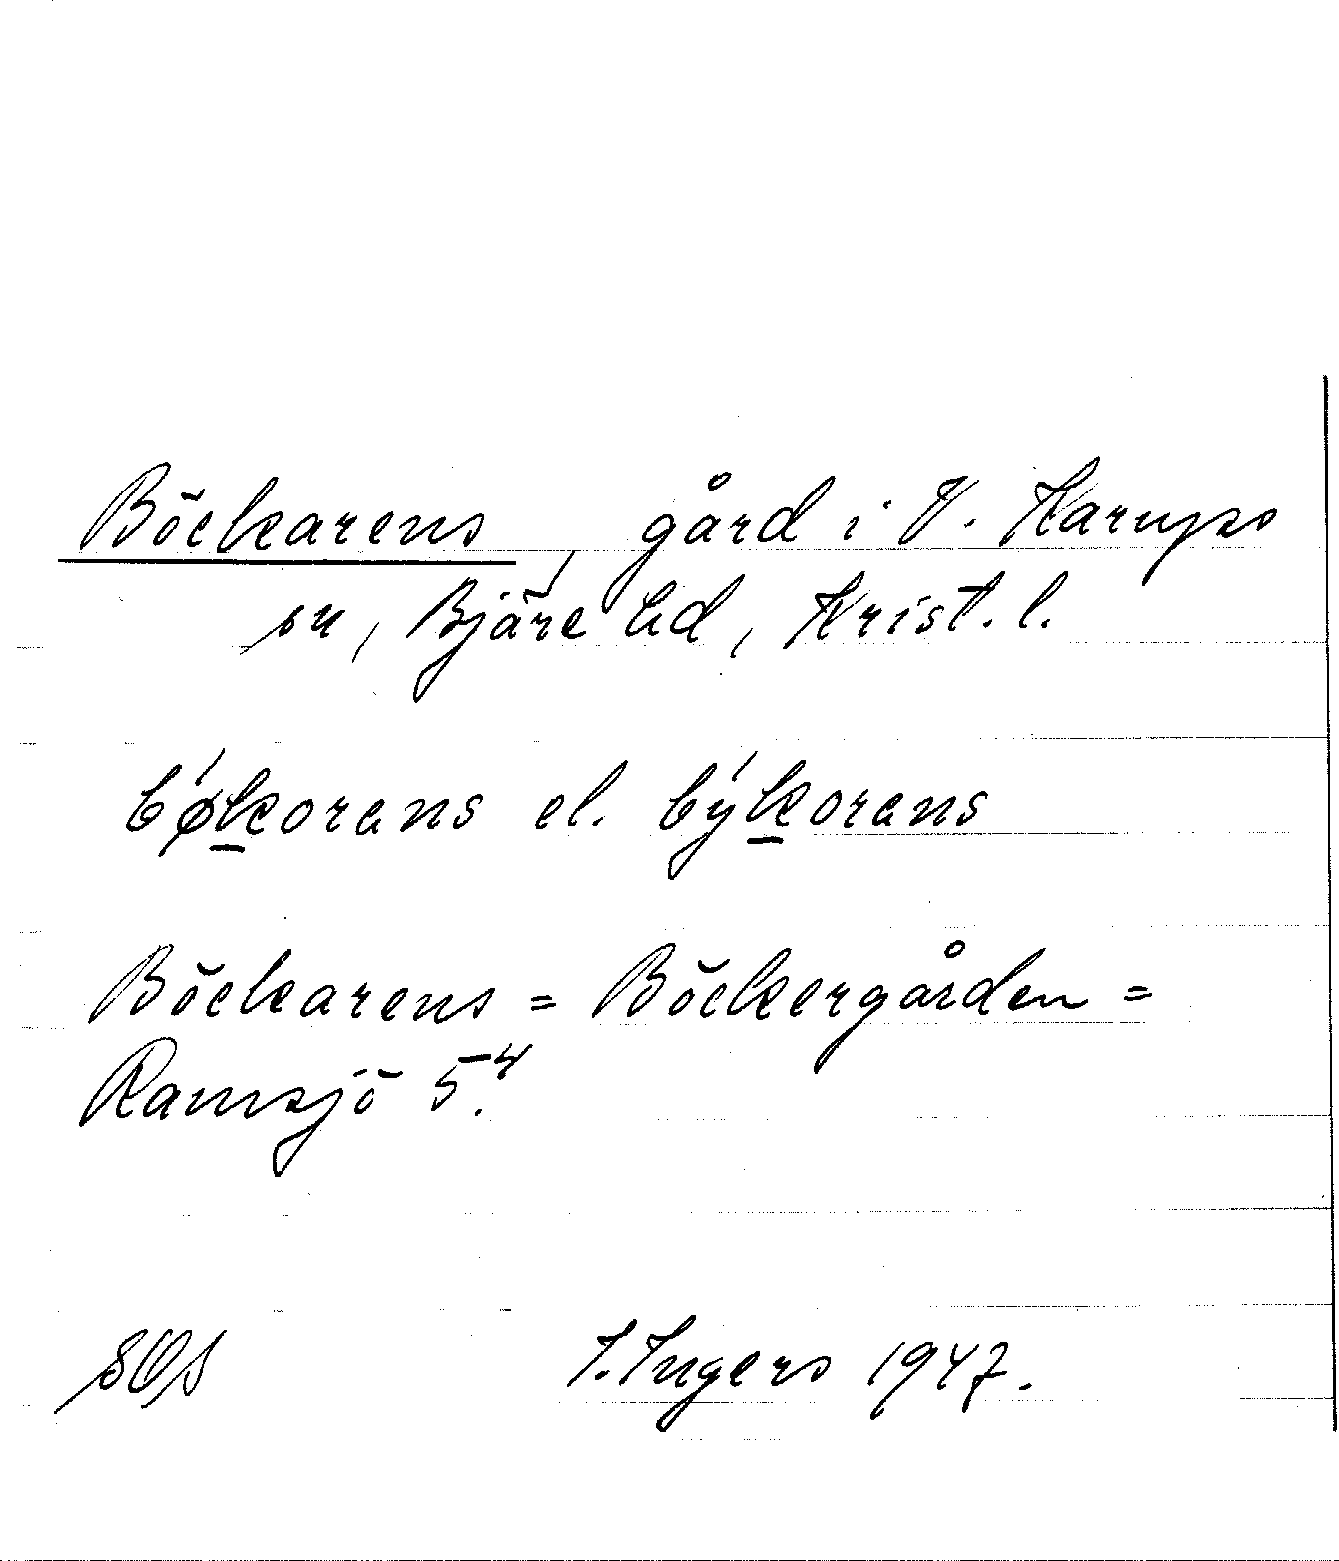 Böckarens, gård i V. Karups
sn, Bjäre hd, Krist. l.
bǿk̲orans el. býk̲orans
Böckarens = Böckergården =
Ramsjö 5⁴.
SOS I. Ingers 1947.